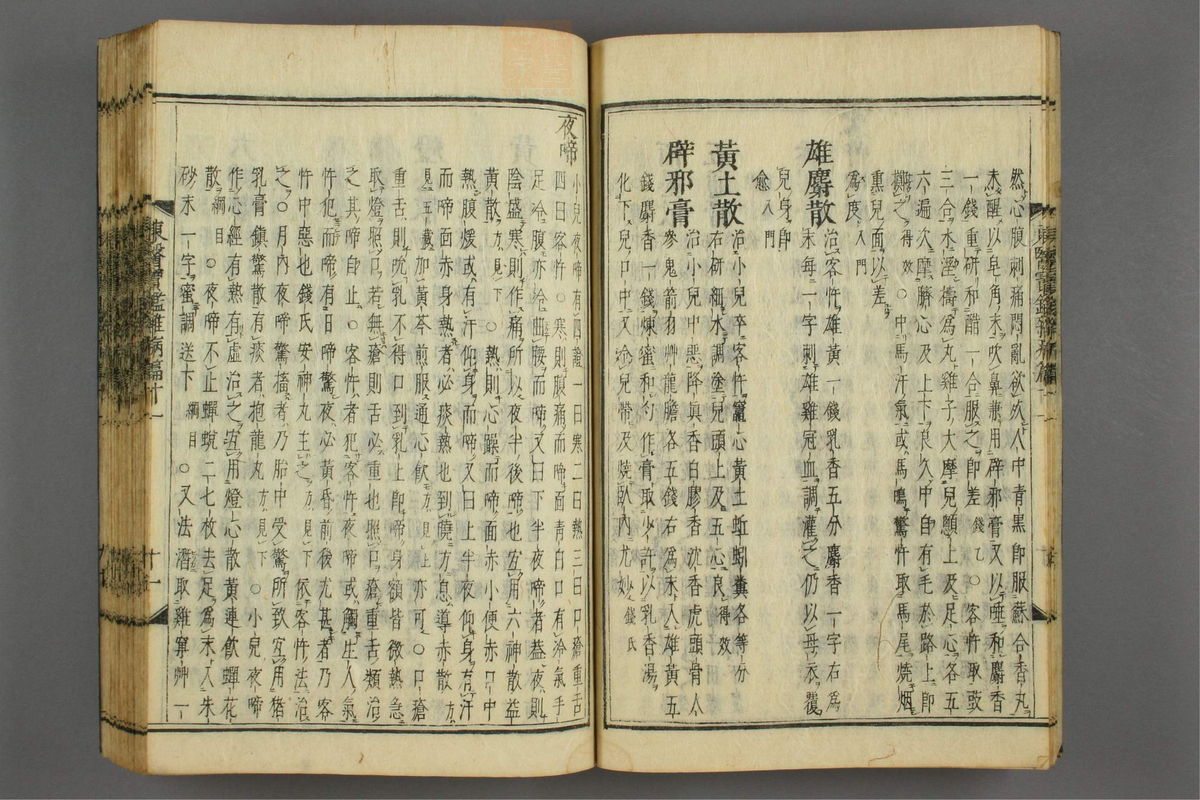 然心腹刺痛悶亂欲死人中青黑卽服蘇合香丸
未醒以皂角末吹鼻兼用辟邪膏又以唾和麝香
一錢重硏和醋一合服之卽差 錢乙 ○客忤取豉
三合水濕擣爲丸雞子大摩兒顖上及足心各五
六遍次摩臍心及上下良久中自有毛於路上卽
擲之 得效 ○中馬汗氣或馬鳴驚忤取馬尾燒烟
熏兒面以差
爲度 入門
雄麝散 治客忤雄黃一錢乳香五分麝香一字右爲
末每一字刺雄雞冠血調灌之仍以母衣覆
兒身卽
愈 入門
黃土散 治小兒卒客忤竈心黃土蚯蚓糞各等分
右硏細水調塗兒頭上及五心良 得效
辟邪膏 治小兒中惡降眞香白膠香沈香虎頭骨人
參鬼箭羽草龍膽各五錢右爲末入雄黃五
錢麝香一錢煉蜜和勻作膏取少許以乳香湯
化下兒口中又令兒帶及燒臥內尤妙 錢氏
夜啼 小兒夜啼有四證一曰寒二曰熱三曰口瘡重舌
四曰客忤○寒則腹痛而啼面靑白口有冷氣手
足冷腹亦冷曲腰而啼又曰下半夜啼者蓋夜則
陰盛寒則作痛所以夜半後啼也宜用六神散益
黃散 方見下 ○熱則心躁而啼面赤小便赤口中
熱腹煖或有汗仰身而啼又曰上半夜仰身有汗
而啼面赤身熱者必痰熱也到曉方息導赤散 方見五藏
加黃芩煎服通心飮 方見上 亦可○口瘡
重舌則吮乳不得口到乳上卽啼身額皆微熱急
取燈照口若無瘡則舌必重也照口瘡重舌類治
之其啼自止○客忤者犯客忤夜啼或觸生人氣
忤犯而啼有日啼驚夜必黃昏前後尤甚者乃客
忤中惡也錢氏安神丸主之 方見下 依客忤法治
之○月內夜啼驚搐者乃胎中受驚所致宜用猪
乳膏鎭驚散有痰者抱龍丸 方見下 ○小兒夜啼
作心經有熱有虛治之宜用燈心散黃連飮蟬花
散 綱目 ○夜啼不止蟬蛻二七枚去足爲末入朱
砂末一字蜜調送下 綱目 ○又法潛取雞窠艸一
東醫寶鑑雜病篇十一
十一
東醫寶鑑雜病篇十一